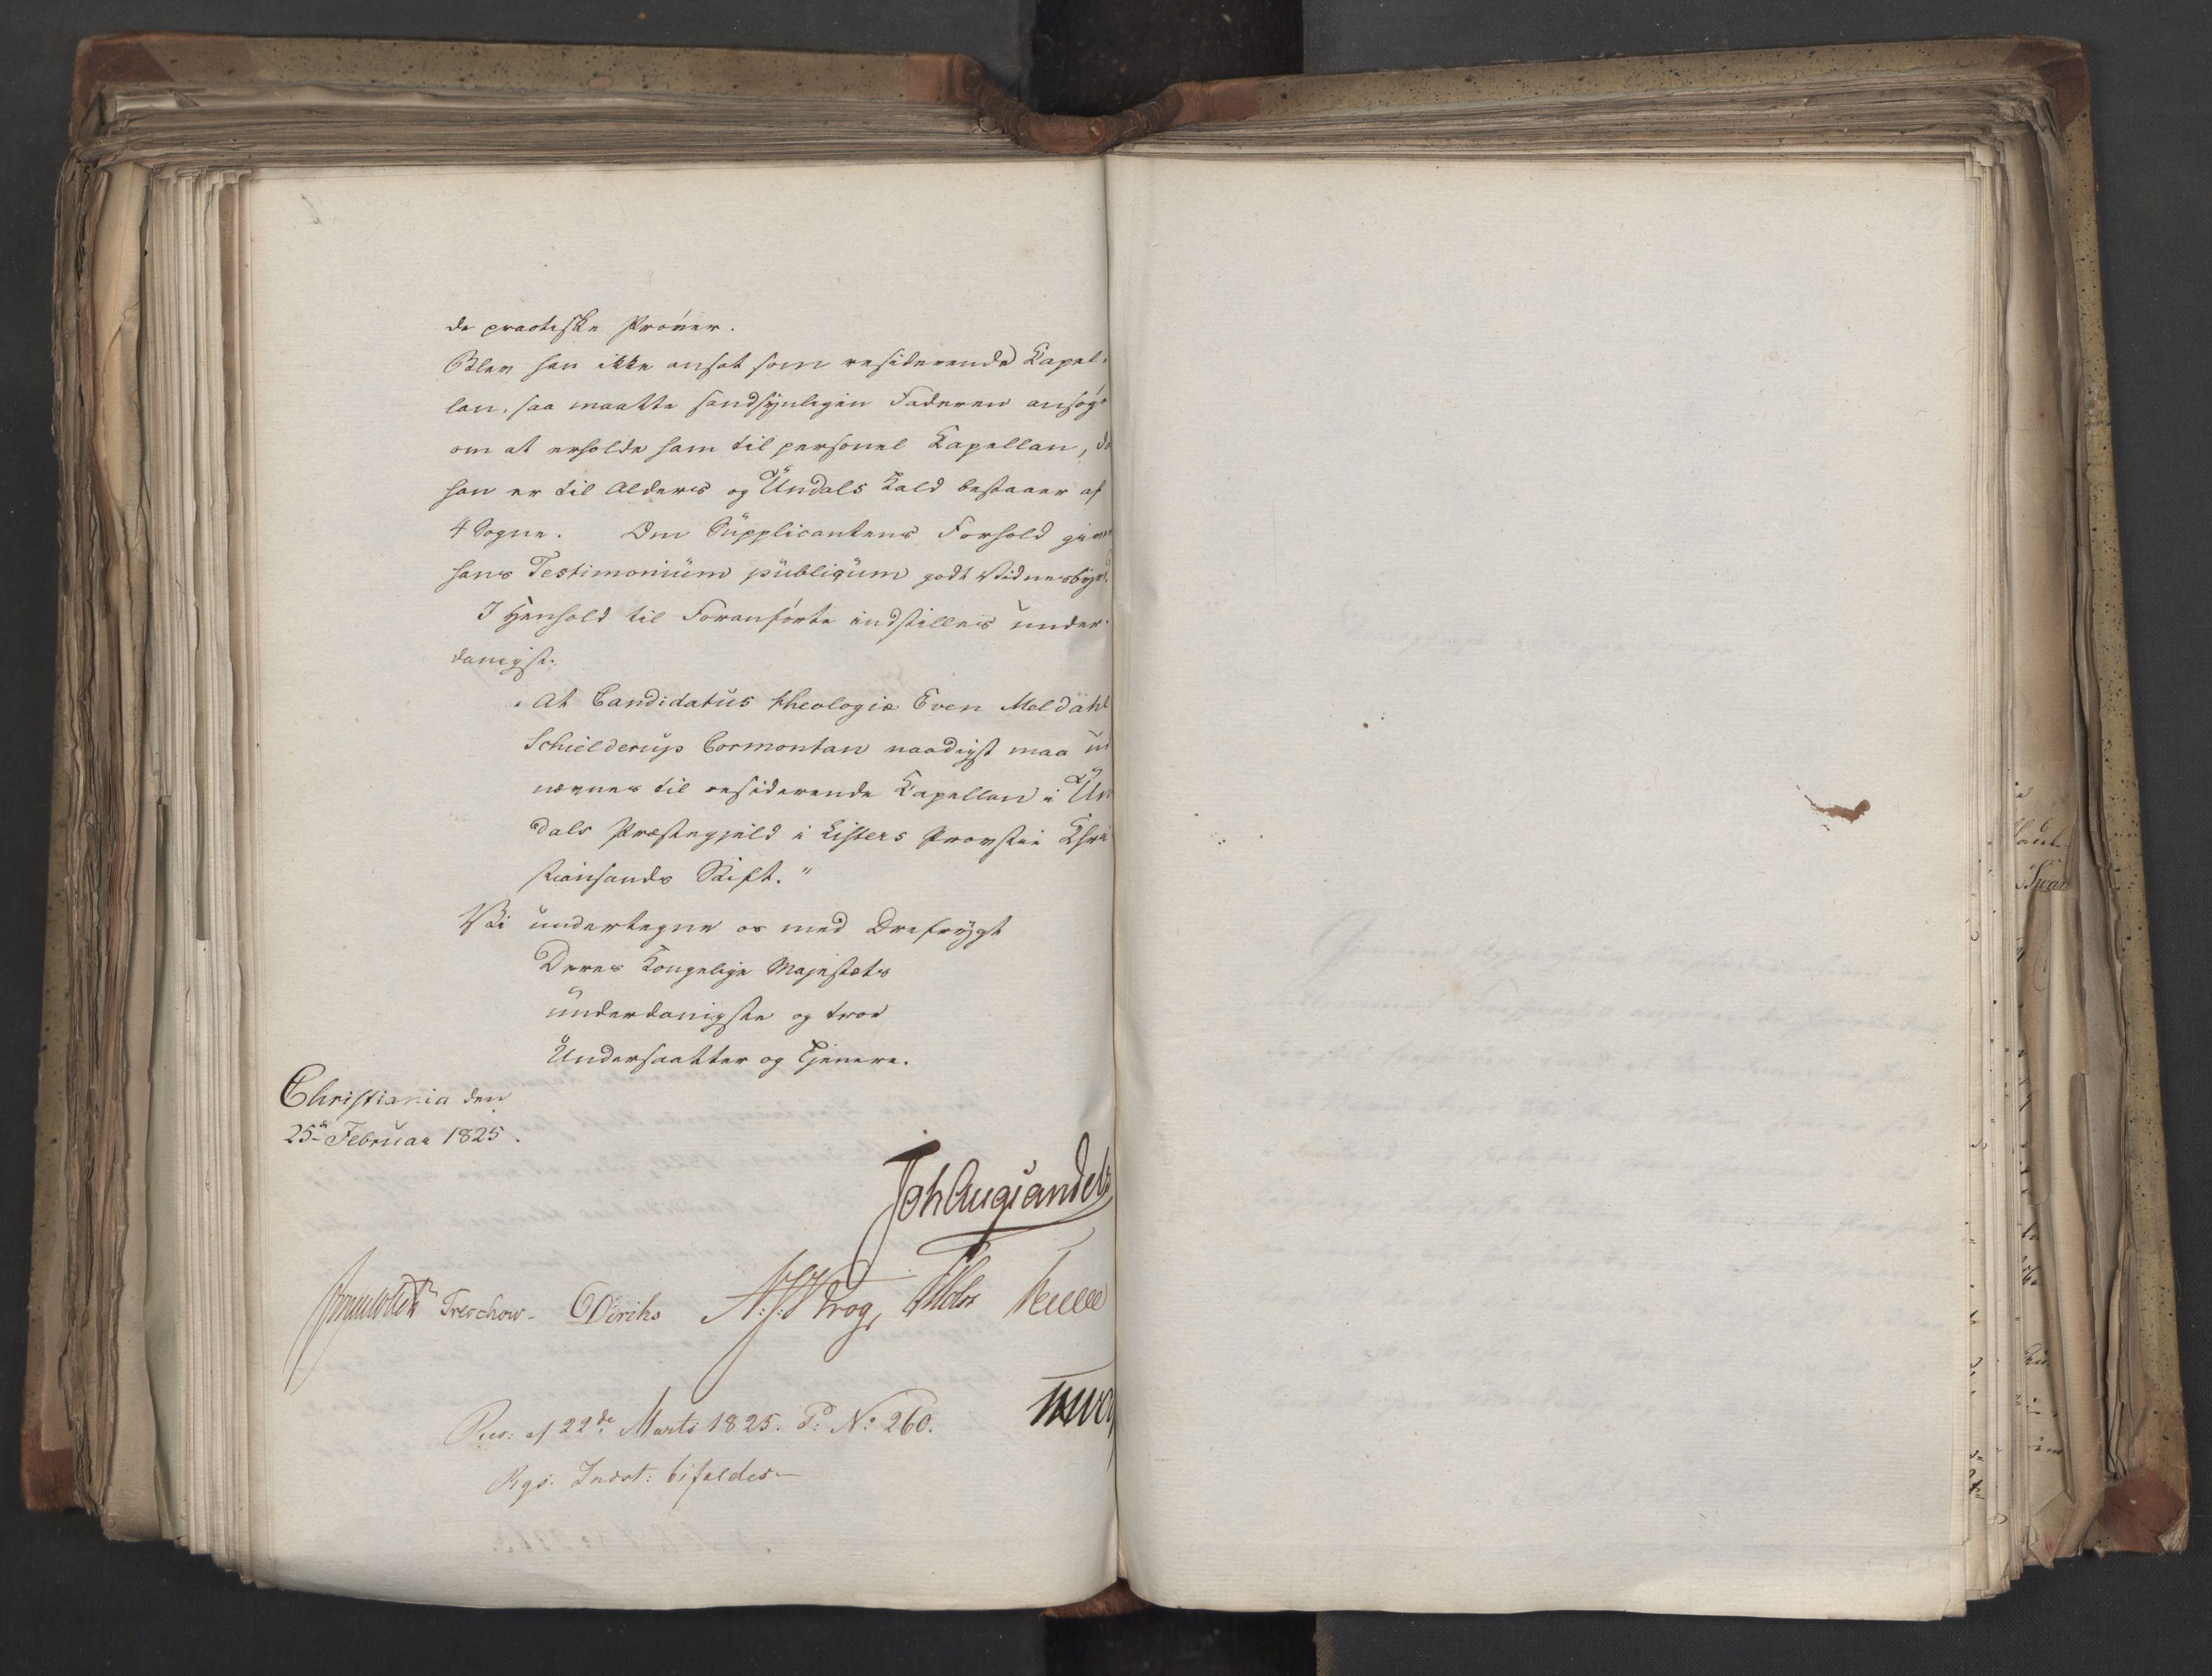 de practiske Prøver.
Blev han ikke ansat som residerende Capel-
lan, saa maatte sandsynligen Faderen ansøge
om at erholde ham til personel Capellan, da
han er til Alders og Undals Kald bestaaer af
4 Sogne. Om Supplicantens Forhold giver
hans Testimonium publicum godt Vidnesbyrd.
I Henhold til Foranførte indstilles under-
danigst.
"At Candidatus theologiæ Even Meldahl
Schielderup Cormontan naadigst maa ud
nævnes til residerende Capellan i Un
dals Præstegjeld i Listers Provstie Chri
stiansands Stift."
Vi undertegne os med Ærefrygt
Deres Kongelige Majestæts
underdanigste og troe
Undersaatter og Tjenere.
Christiania den
25de Februar 1825.
Joh Aug Sandels
Sommerhielm Treschow. CDiriks A: J: Krog, Holst
Res: af 22de Marts 1825. P: No 260.
Rgs. Indst: bifaldes